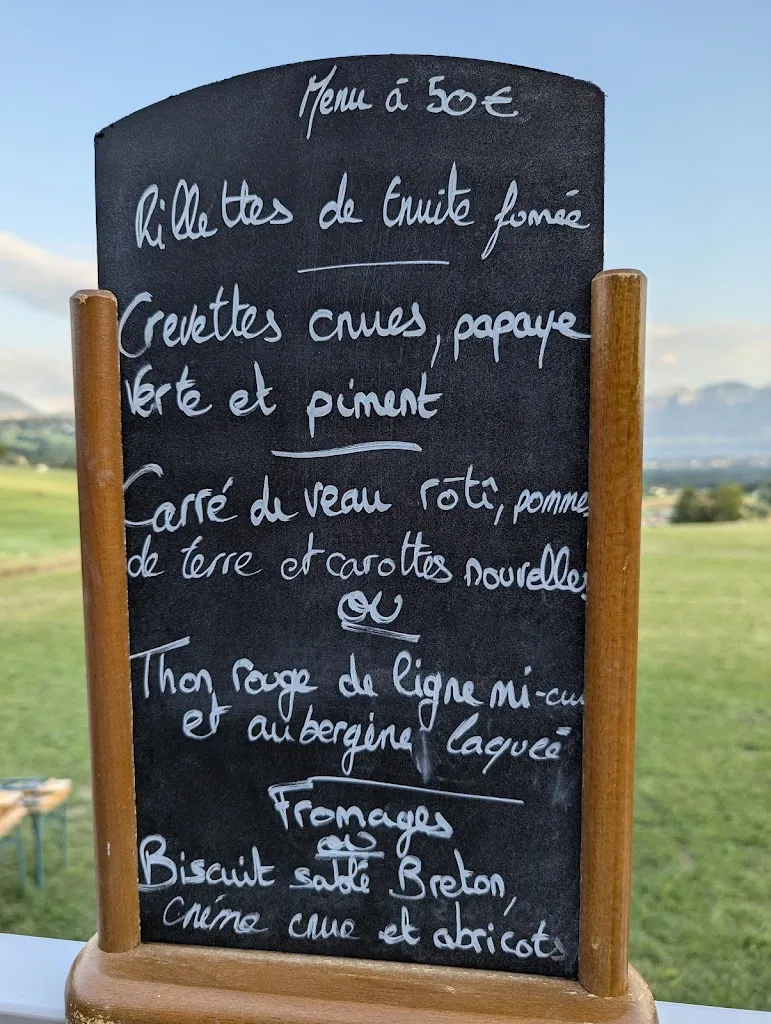 Menu à 50€
Rillettes de truite fumée
Crevettes crues, papaye
verte et piment
Carré de veau rôti, pommes
de terre et carottes nouvelles
ou
Thon rouge de ligne mi-cui
et aubergine laquée
Fromages
ou
Biscuit sablé Breton,
crème crue et abricots